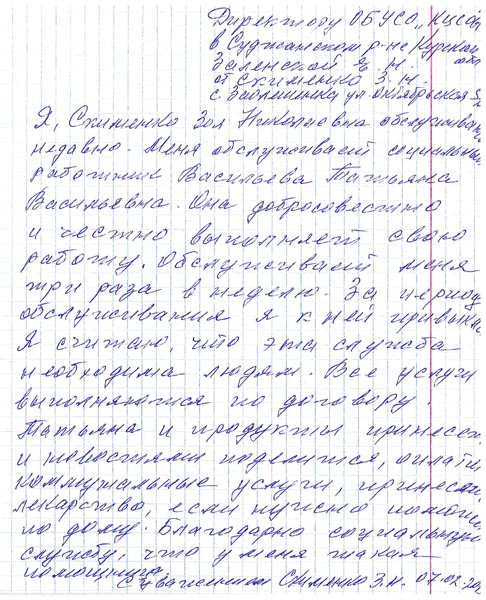 Директору ОБУСО „КЦСОН
в Суджанском р-не Курской обл
Заленской Я. Н.
от Схименко З. Н.
с Заолешенка ул. Октябрьская
Я, Схименко Зоя Николаевна обслуживаюсь
недавно. Меня обслуживает социальный
работник Васильева Татьяна
Васильевна. Она добросовестно
и честно выполняет свою
работу. Обслуживает меня
три раза в неделю. За период
обслуживания я к ней привыкла
Я считаю, что эта служба
необходима людям. Все услуги
выполняются по договору.
Татьяна и продукты принесет
и новостями поделится, оплатит
коммунальные услуги, принесёт
лекарство, если нужно поможет
по дому. Благодарю социальную
службу, что у меня такая
помощница.
С уважением Схименко З.Н. 07.02.20